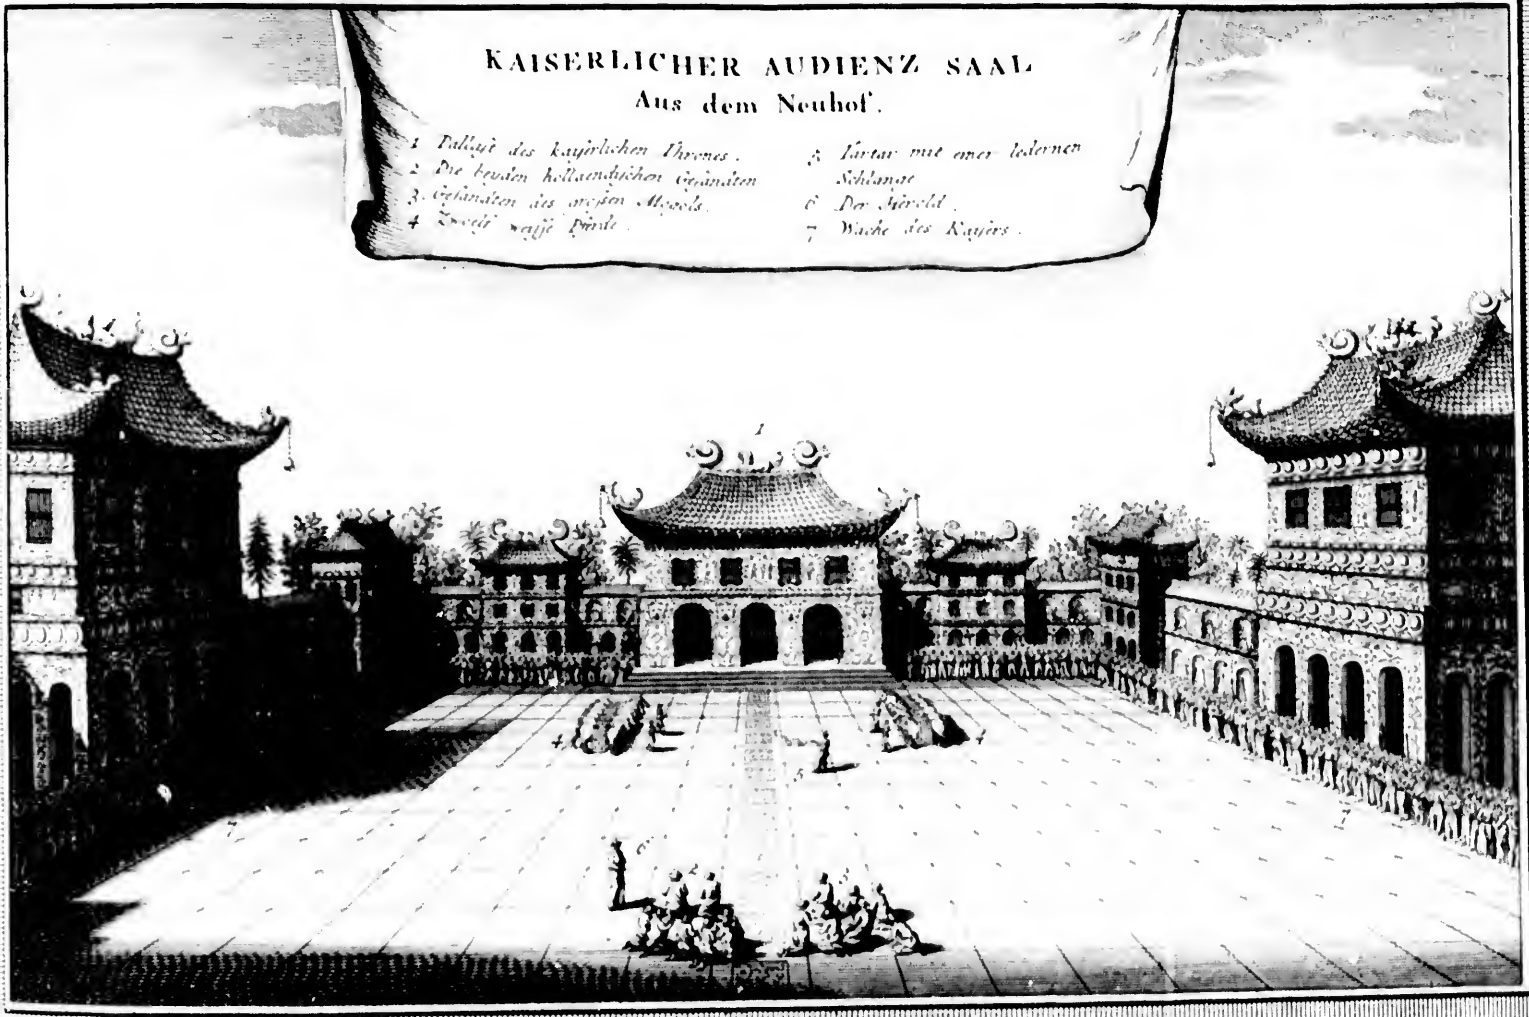 KAISERLICHER AUDIENZ SAAL
Aus dem Neuhof.
1 Pallast des kayserlichen Thrones.
2 Die beyden hollaendischen Gesandten
3. Gesandten des grossen Mogols.
4 Zwoelf weisse Pferde.
5 Tartar mit einer ledernen
Schlange
6 Der Herold.
7 Wache des Kaysers.
1
4
4
5
7
7
6
2
3